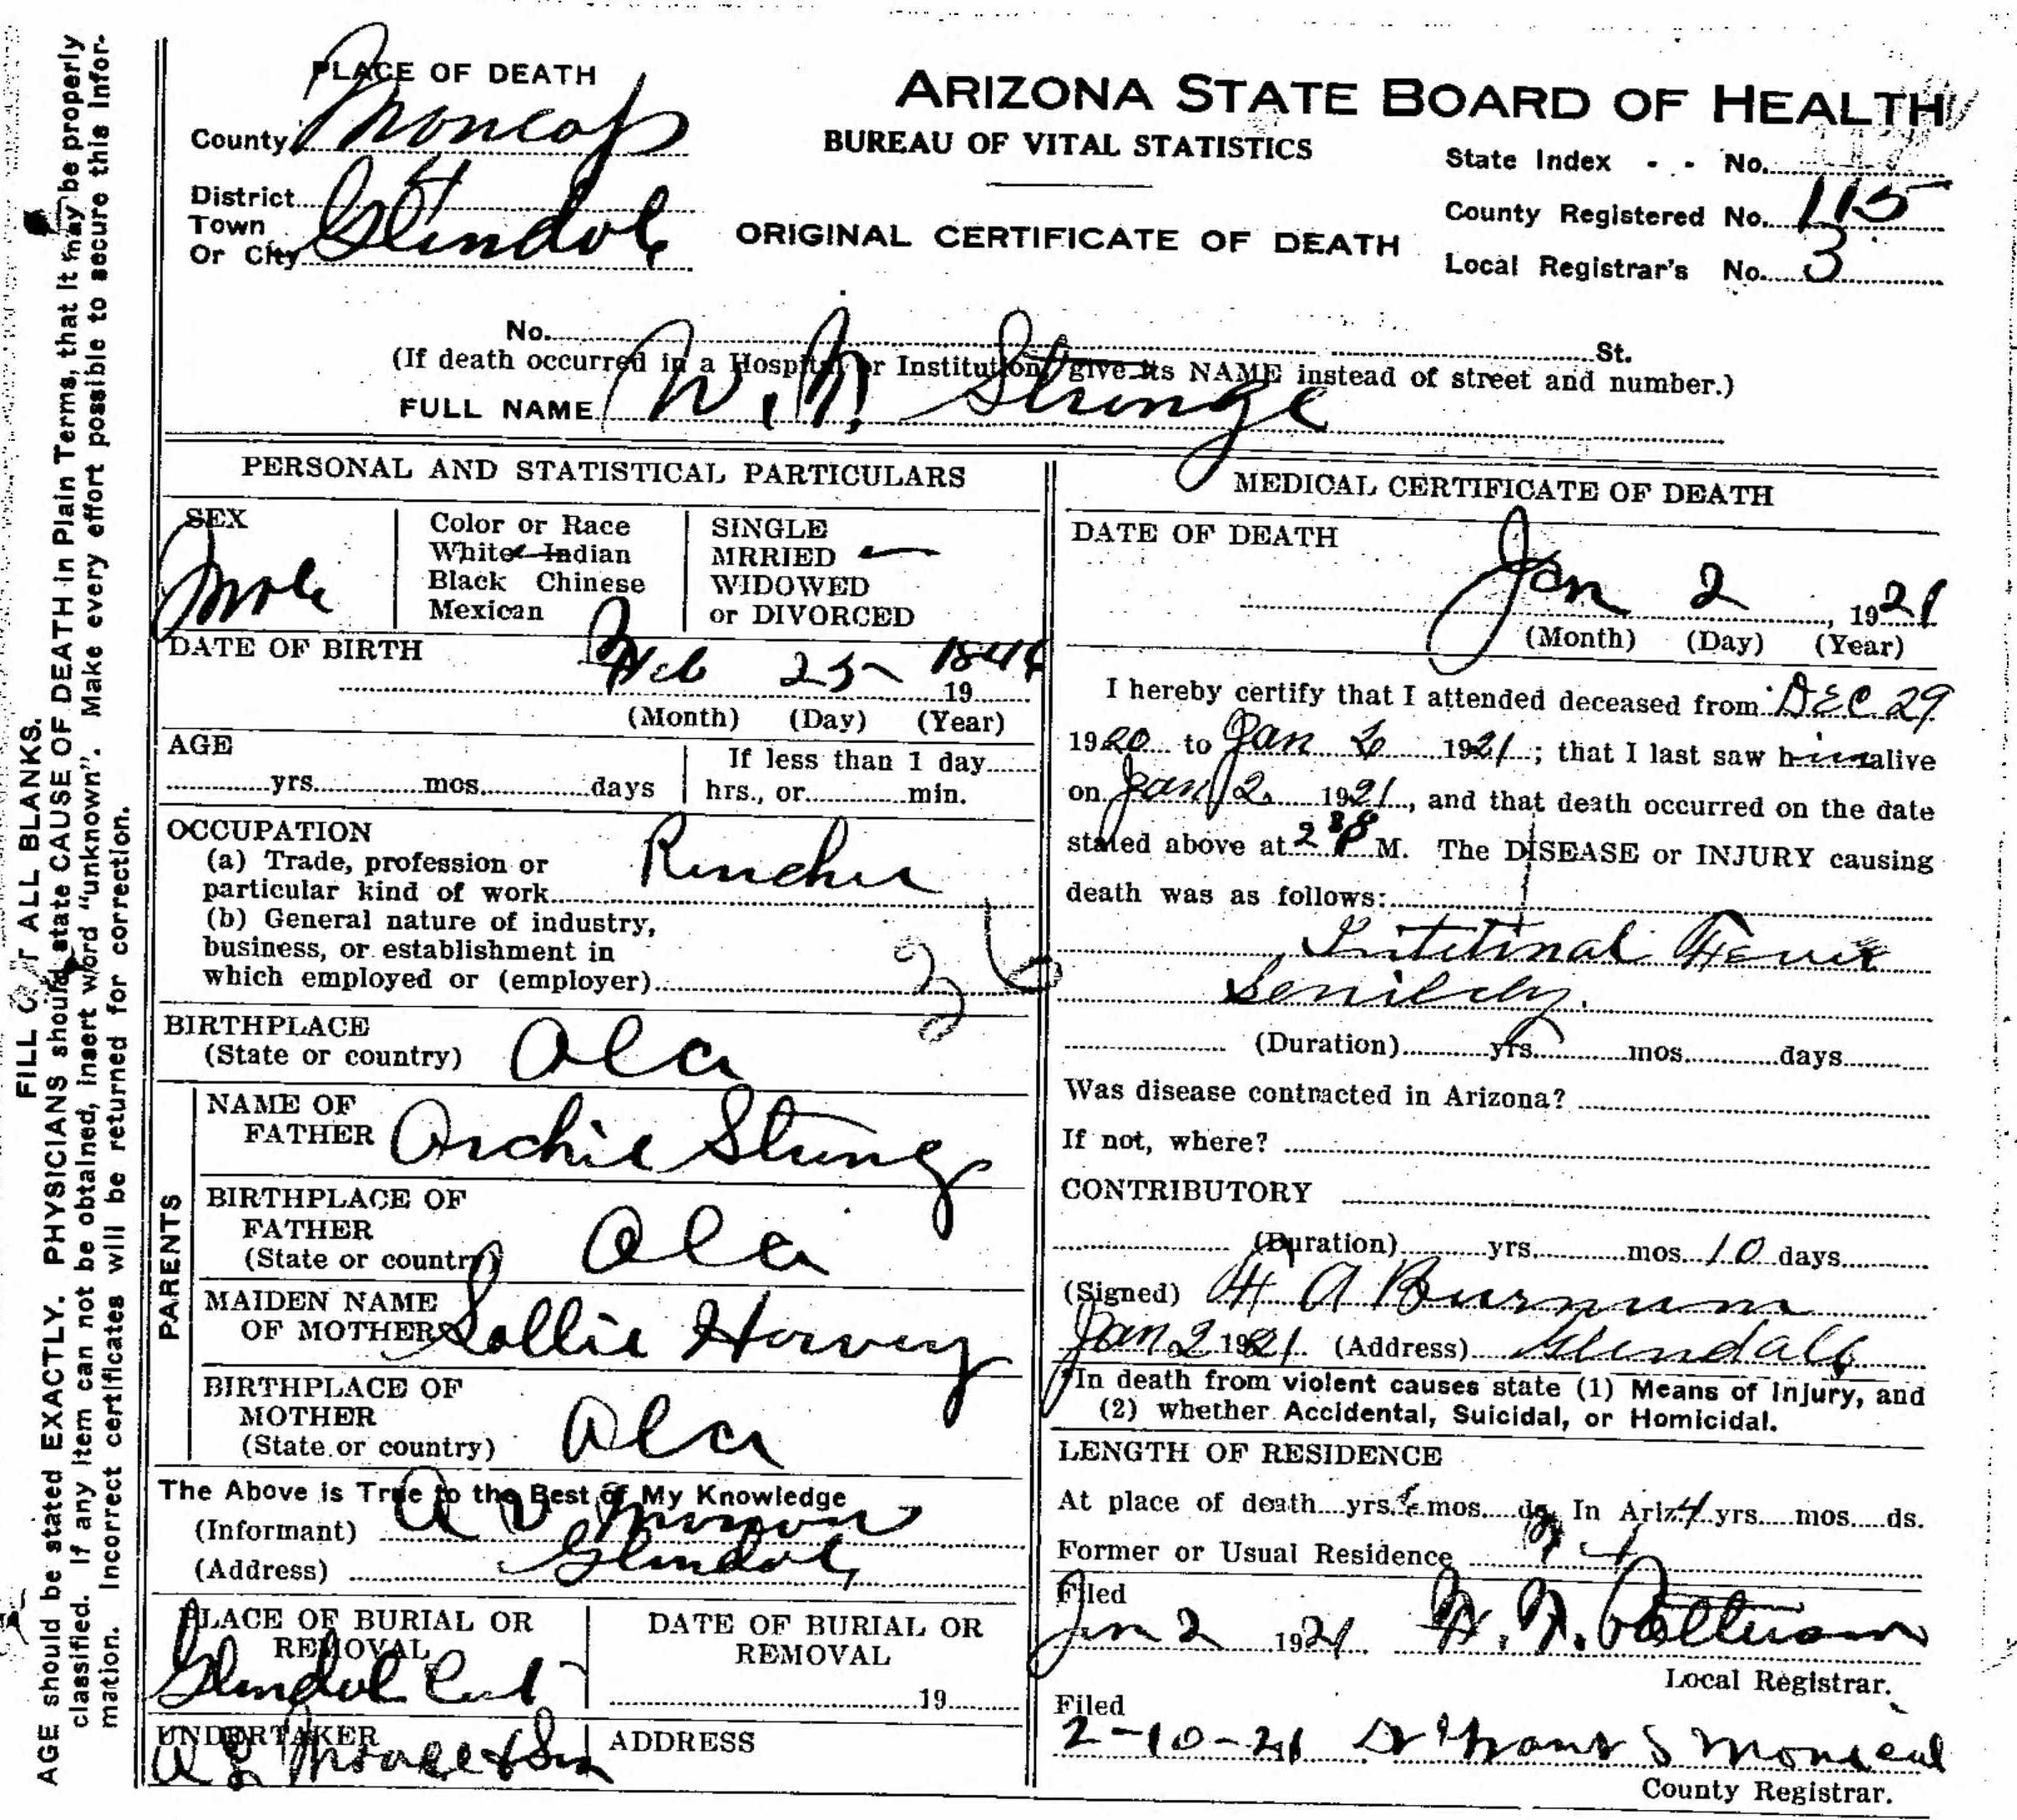 PLACE OF DEATH
ARIZONA STATE BOARD OF HEALTH
BUREAU OF VITAL STATISTICS
County
State Index - - No.
District
County Registered No. 115
Town
Or City
ORIGINAL CERTIFICATE OF DEATH
Local Registrar's No. 3
No. St.
(If death occurred in a Hospital or Institution, give its NAME instead of street and number.)
FULL NAME W. N. Strange
PERSONAL AND STATISTICAL PARTICULARS
SEX
Male
Color or Race
White Indian
Black Chinese
Mexican
SINGLE
MRRIED
WIDOWED
or DIVORCED
DATE OF BIRTH
Feb 25 19
(Month) (Day) (Year)
AGE
yrs. mos. days
If less than 1 day
hrs., or min.
OCCUPATION
(a) Trade, profession or
particular kind of work Rancher
(b) General nature of industry,
business, or establishment in
which employed or (employer)
BIRTHPLACE
(State or country) Ala
PARENTS
NAME OF
FATHER Archie Strang
BIRTHPLACE OF
FATHER
(State or country) Ala
MAIDEN NAME
OF MOTHER Sallie Harvey
BIRTHPLACE OF
MOTHER
(State or country) Ala
The Above is True to the Best of My Knowledge
(Informant) A
(Address) Glendale
PLACE OF BURIAL OR
REMOVAL
Glendale
DATE OF BURIAL OR
REMOVAL
19
UNDERTAKER
& Son
ADDRESS
MEDICAL CERTIFICATE OF DEATH
DATE OF DEATH
Jan 2, 1921
(Month) (Day) (Year)
I hereby certify that I attended deceased from DEC 29
1920 to Jan 1921; that I last saw him alive
on Jan 2 1921, and that death occurred on the date
stated above at M. The DISEASE or INJURY causing
death was as follows:
Senility.
(Duration) yrs. mos. days
Was disease contracted in Arizona?
If not, where?
CONTRIBUTORY
(Duration) yrs. mos. 10 days
(Signed) H A Burnum
Jan 2 1921. (Address) Glendale
In death from violent causes state (1) Means of Injury, and
(2) whether Accidental, Suicidal, or Homicidal.
LENGTH OF RESIDENCE
At place of death yrs. mos. ds. In Ariz. 4 yrs. mos. ds.
Former or Usual Residence
Filed
Jan 2 1921 Patterson
Local Registrar.
Filed
2-10-21 Dr
County Registrar.
FILL OUT ALL BLANKS.
AGE should be stated EXACTLY. PHYSICIANS should state CAUSE OF DEATH in Plain Terms, that it may be properly
classified. If any item can not be obtained, insert word "unknown". Make every effort possible to secure this infor-
mation. Incorrect certificates will be returned for correction.